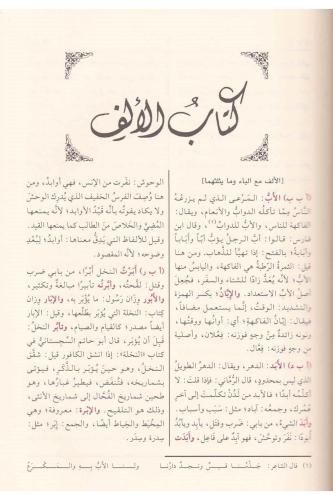 كتاب الألف
[الألف مع الباء وما يثلثهما]
(أ ب ب) الأَبُّ: المرعى الذي لم يزرعه
الناسُ مِمّا تأكله الدوابُّ والأنعام، ويقال:
الفاكهة للناس، والأَبُّ للدوابّ(١)، وقال ابن
فارس: قالوا: أبَّ الرجلُ يؤبُّ أبًّا وأبابًا
وأبابةً؛ بالفتح: إذا تهيأ للذهاب. ومن هنا
قيل: الثمرةُ الرَّطبة هي الفاكهة، واليابسُ منها
الأبُّ؛ لأنه يُعدُّ زادًا للشتاء والسفر، فجُعل
أصلُ الأبّ الاستعداد. والإبَّانُ؛ بكسر الهمزة
والتشديد: الوقتُ، إنما يستعمل مضافًا،
فيقال: إبَّانُ الفاكهةِ؛ أي: أوانُها ووقتُها،
ونونه زائدةٌ مِن وجهٍ فوزنه: فِعْلان، وأصليةٌ
من وجهٍ فوزنه: فِعَّال.
(أ ب د) الأبدُ: الدهر، ويقال: الدهرُ الطويلُ
الذي ليس بمحدودٍ، قال الرُّمّاني: فإذا قلت: لا
أكلّمه أبدًا، فالأبد من لدن تكلمت إلى آخر
عمرك، وجمعه: آباد؛ مثل: سَبَب وأسباب.
وأَبَدَ الشيءُ، من بابي ضرب وقتل، يأبِد ويأبُد
أُبودًا: نفر وتوحّش، فهو آبِد على فاعِل، وأبدت
الوحوش: نفرت من الإنس، فهي أوابدُ، ومن
هنا وُصف الفرسُ الخفيف الذي يُدرك الوحش
ولا يكاد يفوته بأنّه قَيْدُ الأوابد؛ لأنه يمنعها
المُضِيَّ والخلاصَ من الطالب كما يمنعها القيد.
وقيل للألفاظ التي يَدِقُّ معناها: أوابدُ؛ لِبُعد
وضوحه؛ لأنه المقصود.
(أ ب ر) أَبَرْتُ النخل أَبْرًا، من بابي ضرب
وقتل: لقّحتُه، وأبّرتُه تأبيرًا مبالغةٌ وتكثير،
والأَبُور وِزان رَسُول: ما يُؤبر به، والإبار وِزان
كتاب: النخلة التي يؤبر بطلعها، وقيل: الإبار
أيضًا مصدر؛ كالقيام والصيام، وتأبر النخلُ:
قَبِل أن يُؤْبَر، قال أبو حاتم السجستاني في
كتاب «النخلة»: إذا انشق الكافور قيل: شقّق
النخلُ، وهو حين يؤبر بالذكر، فيؤتى
بشماريخه، فتُنفض، فيطير غبارها، وهو
طحين شماريخ الفُحّال إلى شماريخ الأنثى،
وذلك هو التلقيح. والإبرة: معروفة؛ وهي
المِخْيَط والخِياط أيضًا، والجمع: إبَر؛ مثل:
سِدرة وسِدَر.
(١) قال الشاعر: جَذْمُنا قيسٌ ونجدٌ دارُنا ولنا الأبُّ بهِ والمَكْرَعُ